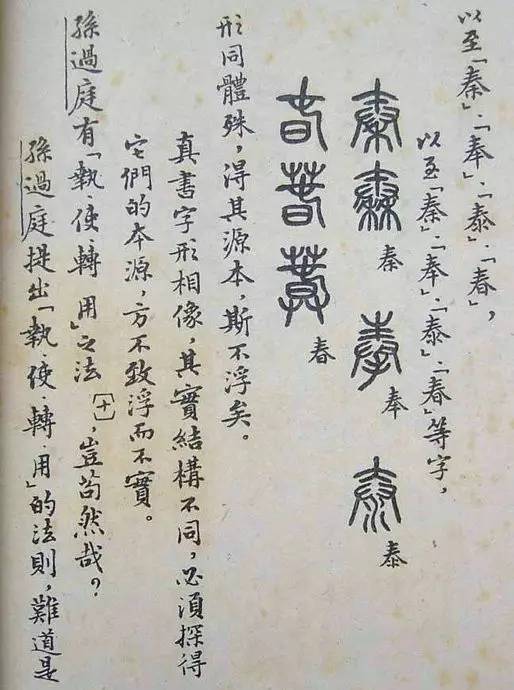 以至「秦」·「奉」·「泰」·「春」,
以至「秦」·「奉」·「泰」·「春」等字,
秦秦秦 奉奉 泰泰
春春春春
形同體殊,得其源本,斯不浮矣。
真書字形相像,其實結構不同,必須探得
它們的本源,方不致浮而不實。
孫過庭有「執·使·轉·用」之法〔十〕,豈苟然哉?
孫過庭提出「執·使·轉·用」的法則,難道是